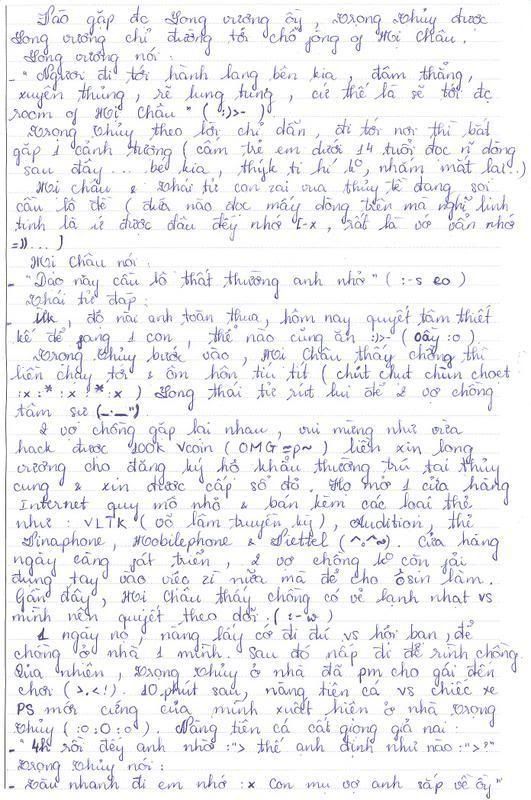 Sao gặp đc Long vương ấy, Trọng Thủy được
Long vương chỉ đường tới chỗ jống of Mị Châu.
Long vương nói:
- "Ngươi đi tới hành lang bên kia, đâm thẳng,
xuyên thủng, rẽ lung tung, cứ thế là sẽ tới đc
room of Mị Châu" ( ;)>- )
Trọng Thủy theo lời chỉ dẫn, đi tới nơi thì bất
gặp 1 cảnh tượng (cấm trẻ em dưới 14 tuổi đọc ~ dòng
sau đây... bé kia, thýk ti hí k°, nhắm mắt lại..)
Mị Châu & thái tử con zai vua thủy tề đang soi
cầu lô đề ( đứa nào đọc mấy dòng trên mà nghĩ linh
tinh là ứ được đâu đấy nhớ [-x, rất là vớ vẩn nhớ
=))... )
Mị Châu nói:
- "Dạo này cầu lô thất thường anh nhở" ( :-s eo )
Thái tử đáp:
- Uk, độ nài anh toàn thua, hôm nay quyết tâm thiết
kế để jang 1 con, thế nào cũng ăn :)>- ( Oầy :o )
Trọng Thủy bước vào, Mị Châu thấy chồng thì
liền chạy tới & ôm hôn tíu tít ( chút chut chùn choet
:x :* :x :* :x ) Long thái tử rút lui để 2 vợ chồng
tâm sự (_._").
2 vợ chồng gặp lại nhau, vui mừng như vừa
hack được 100k Vcoin ( OMG =p~ ) liền xin long
vương cho đăng ký hộ khẩu thường trú tại thủy
cung & xin được cấp sổ đỏ. Họ mở 1 cửa hàng
Internet quy mô nhỏ & bán kèm các loại thẻ
như: VLTK ( Võ lâm truyền kỳ ), Audition, thẻ
Vinaphone, Mobilephone & Viettel (^.^~). Cửa hàng
ngày càng fát triển, 2 vợ chồng k° còn fải
dùng tay vào việc zì nữa mà để cho ôsin làm.
Gần đây, Mị Châu thấy chồng có vẻ lạnh nhạt vs
mình nên quyết theo dõi. ( :-w )
1 ngày nọ, nàng lấy cớ đi dú vs hội bạn, để
chồng ở nhà 1 mình. Sau đó nấp đi để rình chồng.
Quả nhiên, Trọng Thủy ở nhà đã pm cho gái đến
chơi (>.<!). 10 phút sau, nàng tiên cá vs chiếc xe
PS mới cứng của mình xuất hiện ở nhà Trọng
Thủy ( :o :O :o ). Nàng tiên cá cất giọng giả nai:
- "4h rồi đấy anh nhở :"> thế anh định như nào :">?"
Trọng Thủy nói:
- Vầu nhanh đi em nhớ :x Con mụ vợ anh sắp về ồy"